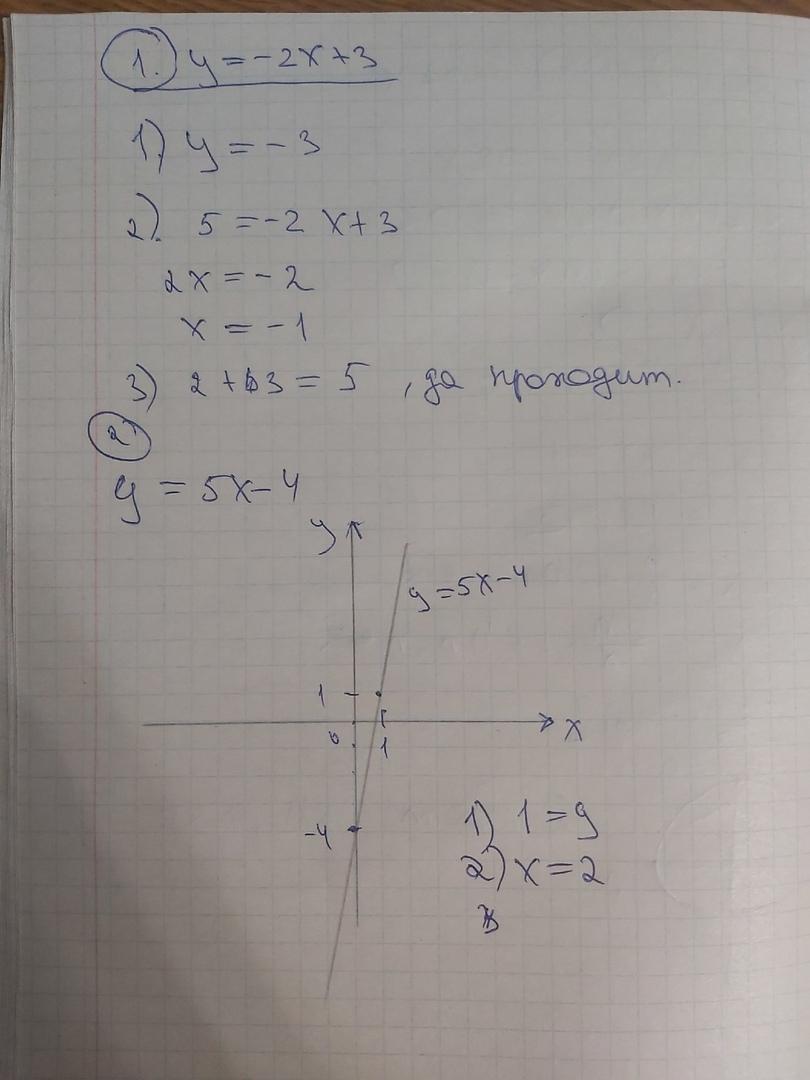 1. y = -2x + 3
1) y = -3
2). 5 = -2 x + 3
2x = -2
x = -1
3) 2 + 3 = 5 , да проходит.
2
y = 5x - 4
y
y = 5x - 4
1
0
1
x
-4
1) 1 = y
2) x = 2